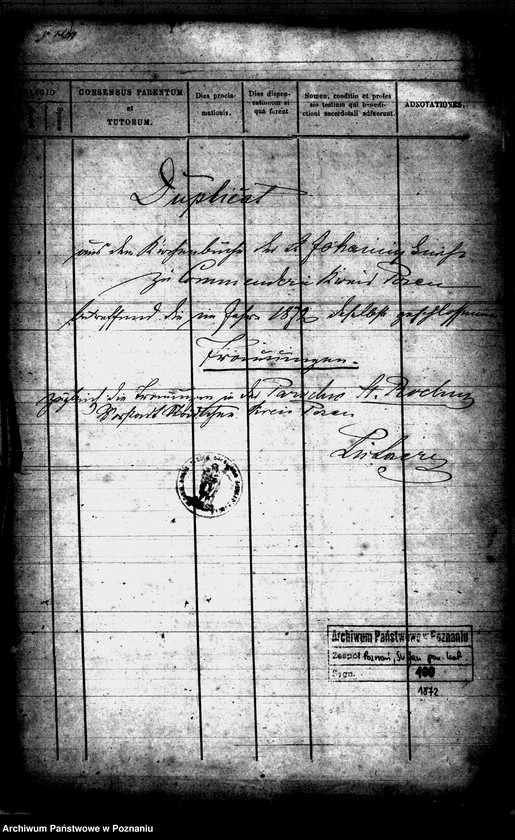 RELIGIO
Sponsi
Sponsae
CONSENSUS PARENTUM
et
TUTORUM.
Dies procla-
mationis.
Dies dispen-
sationum si
quæ fuerint
Nomen, conditio et profes
sio testium qui benedi-
ctioni sacerdotali adfuerunt.
ADNOTATIONES.
Duplicat
aus dem Kirchenbuche der St Johannis
zu Commenderi Kreis Posen
betreffend die im Jahre 1872 daselbst geschlossenen
Trauungen.
zugleich die Trauungen in der Parochie St. Rochus
Vorstadt Städtchen Kreis Posen
Archiwum Państwowe w Poznaniu
Zespół Poznań, Św. Jan par. kat.
Sygn. 100
1872
Archiwum Państwowe w Poznaniu